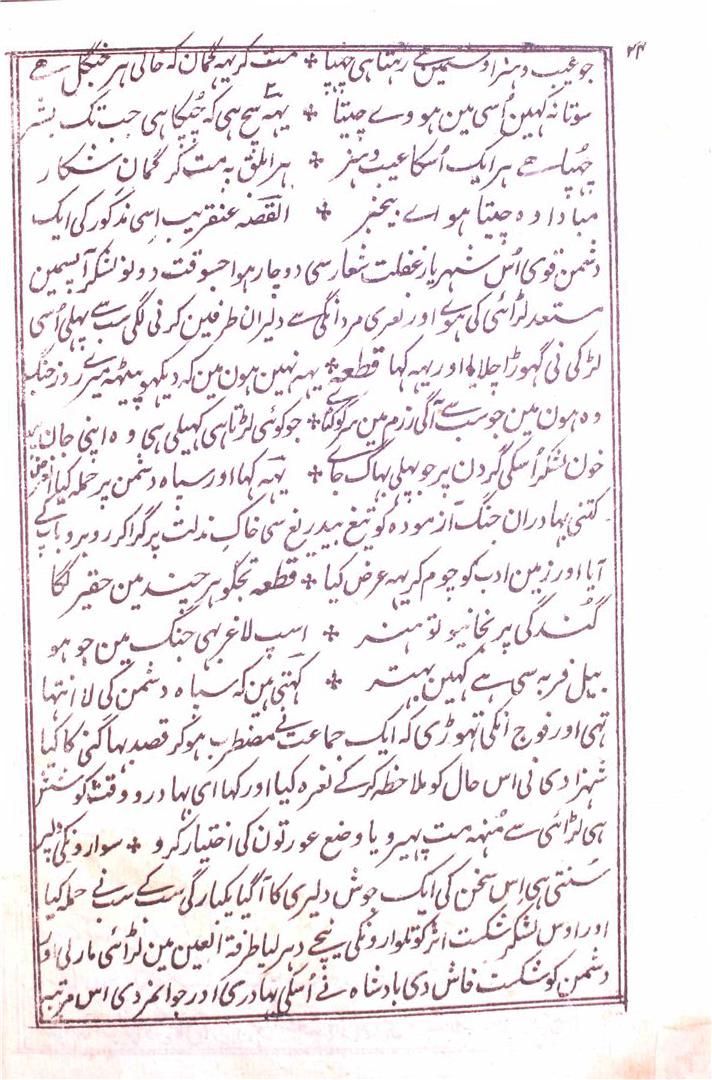 ۲۴
جو عیب وہنر اوسمین ہے رہتا ہی چھپا ❊ مت کر یہہ گمان کہ خالی ہر جنگل ہے
سوتا نہ کہین اُسی مین ہووے چیتا ❊ یہہ سچ ہی کہ چُپکا ہی جب تک بشر
چھپا ہے ہر ایک اُسکا عیب وہنر ❊ ہر ابلق پہ مت کر گمان شکار
مبادا وہ چیتا ہو اے بیخبر ❊ القصّہ عنقریب اِسی مذکور کی ایک
دشمن قوی اُس شہریار غفلت شعار سی دوچار ہوا جسوقت دونو لشکر آپسمین
مستعد لڑائی کی ہوے اور نعری مردانگی سے دلیران طرفین کرنی لگی سب سے پہلی اُسی
لڑکی نی گھوڑا چلایا اور یہہ کہا قطعہ ❊ یہہ نہین ہون مین کہ دیکھو پیٹھہ میری روز جنگ
وہ ہون مین جو سب سے آگی رزم مین سر کو کٹا ❊ جو کوئی لڑتا ہی کھیلی ہی وہ اپنی جان پہ
خون لشکر اُسکی گردن پر جو پہلی بھاگ جاے ❊ یہہ کہا اور سپاہ دشمن پر حملہ کیا
کتنی بہادران جنگ آزمودہ کو تیغ بیدریغ سی خاک مذلت پر گرا کر روبرو باپ کے
آیا اور زمین ادب کو چوم کر یہہ عرض کیا ❊ قطعہ تجکو ہر چند مین حقیر لگا
گندگی پر نجانیو تو ہنر ❊ اسپ لاغر بہی جنگ مین جو ہو
بیل فربہ سی ہے کہین بہتر ❊ کہتی ہین کہ سپاہ دشمن کی لا انتہا
تہی اور فوج انکی تہوڑی کہ ایک جماعت نے مضطرب ہو کر قصد بہاگنی کا کیا
شہزادی نی اس حال کو ملاحظہ کر کے نعرہ کیا اور کہا ای بہادرو وقت کوشش
ہی لڑائی سے مُنہہ مت پہیرو یا وضع عورتون کی اختیار کرو ❊ سوارونکی دلپر
سُنتی ہی اِس سخن کی ایک جوش دلیری کا آگیا یکبارگی سب کے سب نے حملہ کیا
اور اوس لشکر شکست اثر کو تلوارونکی نیچے دہر لیا طرفۃ العین مین لڑائی مار لی اور
دشمن کو شکست فاش دی بادشاہ نے اُسکی بہادری اور جوانمردی اس مرتبہ